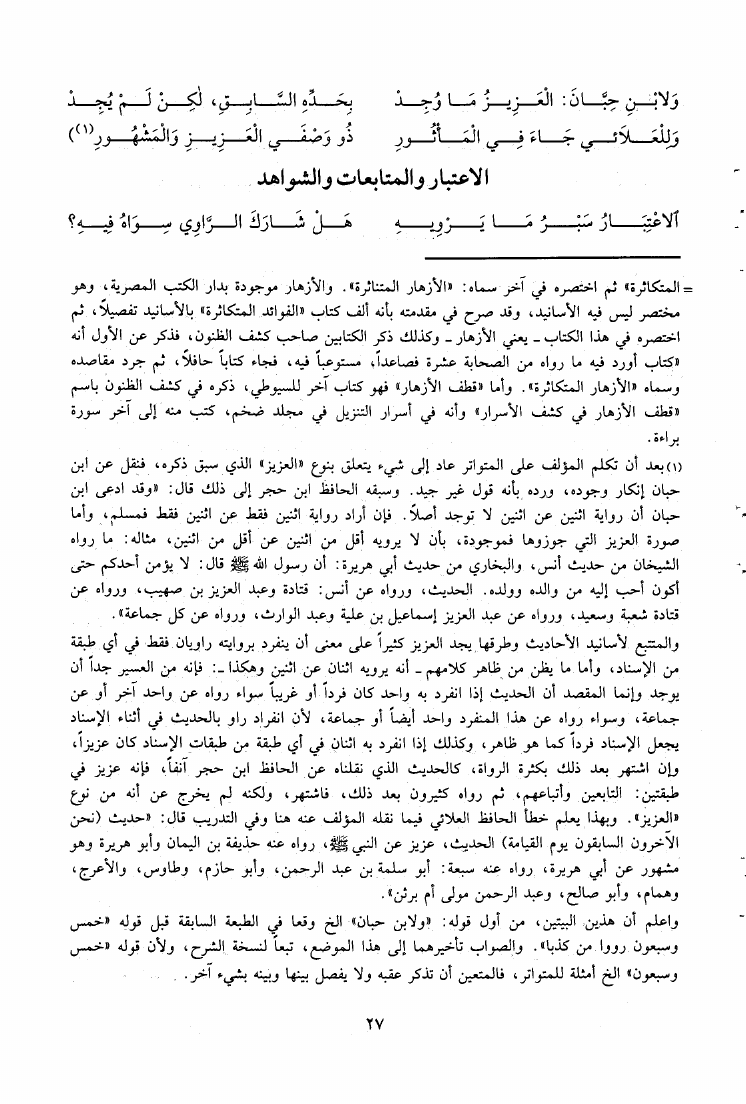 وَلابْـنِ حِبَّـانَ: الْعَـزِيـزُ مَـا وُجِـدْ بِحَـدِّهِ السَّـابِـقِ، لٰكِـنْ لَـمْ يُجِـدْ
وَلِلْعَـلَائـي جَـاءَ فِـي الْمَـأْثُـورِ ذُو وَصْفَـي الْعَـزِيـزِ وَالْمَشْهُـورِ(١)
الاعتبار والمتابعات والشواهد
اَلاعْتِبَـارُ سَبْـرُ مَـا يَـرْوِيـهِ هَـلْ شَـارَكَ الـرَّاوِي سِـوَاهُ فِيـهِ؟
= المتكاثرة» ثم اختصره في آخر سماه: «الأزهار المتناثرة». والأزهار موجودة بدار الكتب المصرية، وهو
مختصر ليس فيه الأسانيد، وقد صرح في مقدمته بأنه ألف كتاب «الفوائد المتكاثرة» بالأسانيد تفصيلاً، ثم
اختصره في هذا الكتاب ـ يعني الأزهار ـ وكذلك ذكر الكتابين صاحب كشف الظنون، فذكر عن الأول أنه
«كتاب أورد فيه ما رواه من الصحابة عشرة فصاعداً، مستوعباً فيه، فجاء كتاباً حافلاً، ثم جرد مقاصده
وسماه «الأزهار المتكاثرة». وأما «قطف الأزهار» فهو كتاب آخر للسيوطي، ذكره في كشف الظنون باسم
«قطف الأزهار في كشف الأسرار» وأنه في أسرار التنزيل في مجلد ضخم، كتب منه إلى آخر سورة
براءة.
(١) بعد أن تكلم المؤلف على المتواتر عاد إلى شيء يتعلق بنوع «العزيز» الذي سبق ذكره، فنقل عن ابن
حبان إنكار وجوده، ورده بأنه قول غير جيد. وسبقه الحافظ ابن حجر إلى ذلك قال: «وقد ادعى ابن
حبان أن رواية اثنين عن اثنين لا توجد أصلاً. فإن أراد رواية اثنين فقط عن اثنين فقط فمسلم، وأما
صورة العزيز التي جوزوها فموجودة، بأن لا يرويه أقل من اثنين عن أقل من اثنين، مثاله: ما رواه
الشيخان من حديث أنس، والبخاري من حديث أبي هريرة: أن رسول الله ﷺ قال: لا يؤمن أحدكم حتى
أكون أحب إليه من والده وولده. الحديث، ورواه عن أنس: قتادة وعبد العزيز بن صهيب، ورواه عن
قتادة شعبة وسعيد، ورواه عن عبد العزيز إسماعيل بن علية وعبد الوارث، ورواه عن كل جماعة».
والمتتبع لأسانيد الأحاديث وطرقها يجد العزيز كثيراً على معنى أن ينفرد بروايته راويان فقط في أي طبقة
من الإسناد، وأما ما يظن من ظاهر كلامهم ـ أنه يرويه اثنان عن اثنين وهكذا ـ: فإنه من العسير جداً أن
يوجد وإنما المقصد أن الحديث إذا انفرد به واحد كان فرداً أو غريباً سواء رواه عن واحد آخر أو عن
جماعة، وسواء رواه عن هذا المنفرد واحد أيضاً أو جماعة، لأن انفراد راو بالحديث في أثناء الإسناد
يجعل الإسناد فرداً كما هو ظاهر، وكذلك إذا انفرد به اثنان في أي طبقة من طبقات الإسناد كان عزيزاً،
وإن اشتهر بعد ذلك بكثرة الرواة، كالحديث الذي نقلناه عن الحافظ ابن حجر آنفاً، فإنه عزيز في
طبقتين: التابعين وأتباعهم، ثم رواه كثيرون بعد ذلك، فاشتهر، ولكنه لم يخرج عن أنه من نوع
«العزيز». وبهذا يعلم خطأ الحافظ العلائي فيما نقله المؤلف عنه هنا وفي التدريب قال: «حديث (نحن
الآخرون السابقون يوم القيامة) الحديث، عزيز عن النبي ﷺ، رواه عنه حذيفة بن اليمان وأبو هريرة وهو
مشهور عن أبي هريرة، رواه عنه سبعة: أبو سلمة بن عبد الرحمن، وأبو حازم، وطاوس، والأعرج،
وهمام، وأبو صالح، وعبد الرحمن مولى أم برثن».
واعلم أن هذين البيتين، من أول قوله: «ولابن حبان» الخ وقعا في الطبعة السابقة قبل قوله «خمس
وسبعون رووا من كذبا». والصواب تأخيرهما إلى هذا الموضع، تبعاً لنسخة الشرح، ولأن قوله «خمس
وسبعون» الخ أمثلة للمتواتر، فالمتعين أن تذكر عقبه ولا يفصل بينها وبينه بشيء آخر.
٢٧